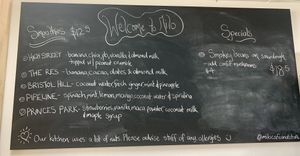 Welcome to Milo
Smoothies $12.5
HIGH STREET - banana, chia, do, vanilla, almond milk,
topped w/ peanut crumble
THE RES - banana, cacao, dates & almond milk
BRISTOL HILL - coconut water, fresh ginger, mint & pineapple
PIPELINE - spinach, mint, lemon, mango, coconut water & spirulina
PRINCES PARK - strawberries, vanilla, maca powder, coconut milk
& maple syrup
Specials
Smokey beans on sourdough
- add confit mushrooms
$4
$18.5
Our kitchen uses a lot of nuts. Please advise staff of any allergies